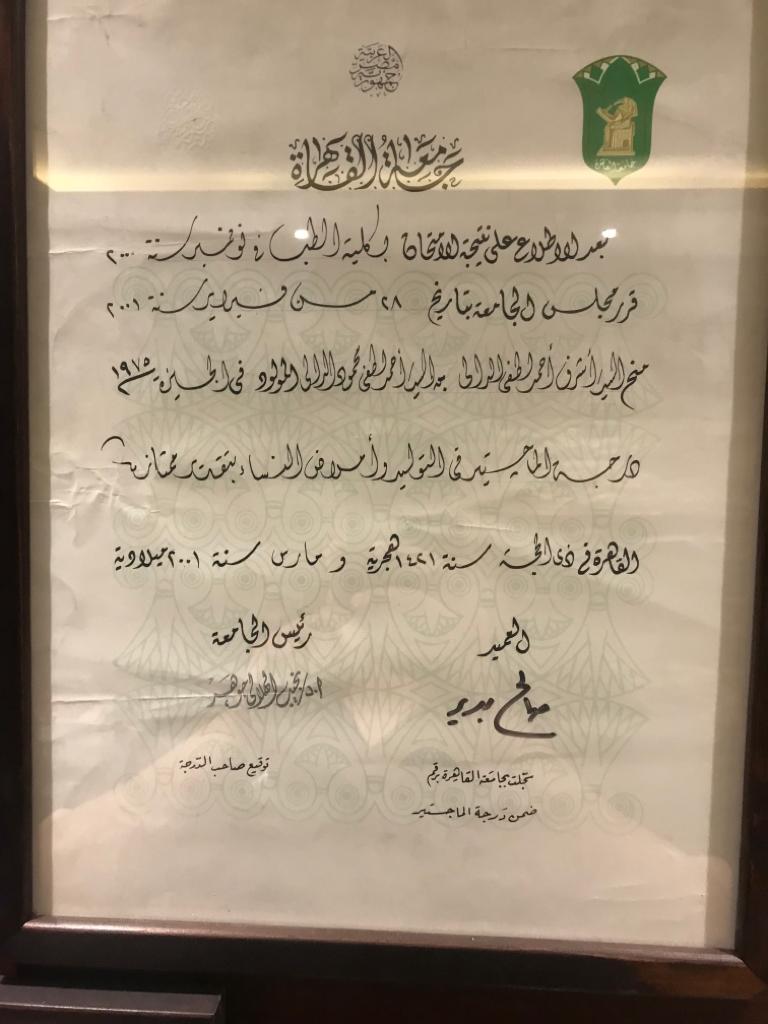 جمهورية مصر العربية
جامعة القاهرة
جامعة القاهرة
بعد الاطلاع على نتيجة الامتحان بكلية الطب في نوفمبر سنة ٢٠٠٠
قرر مجلس الجامعة بتاريخ ٢٨ من فبراير سنة ٢٠٠١
منح السيد أشرف أحمد لطفى الدالى بن السيد أحمد لطفى محمود الدالى المولود فى الجيزة ١٩٧٥
درجة الماجستير فى التوليد وأمراض النساء بتقدير ممتاز
القاهرة فى ذى الحجة سنة ١٤٢١ هجرية و مارس سنة ٢٠٠١ ميلادية
العميد
رئيس الجامعة
أ.د/ نجيب الهلالى جوهر
توقيع صاحب الدرجة
سجلت بجامعة القاهرة برقم
ضمن درجة الماجستير